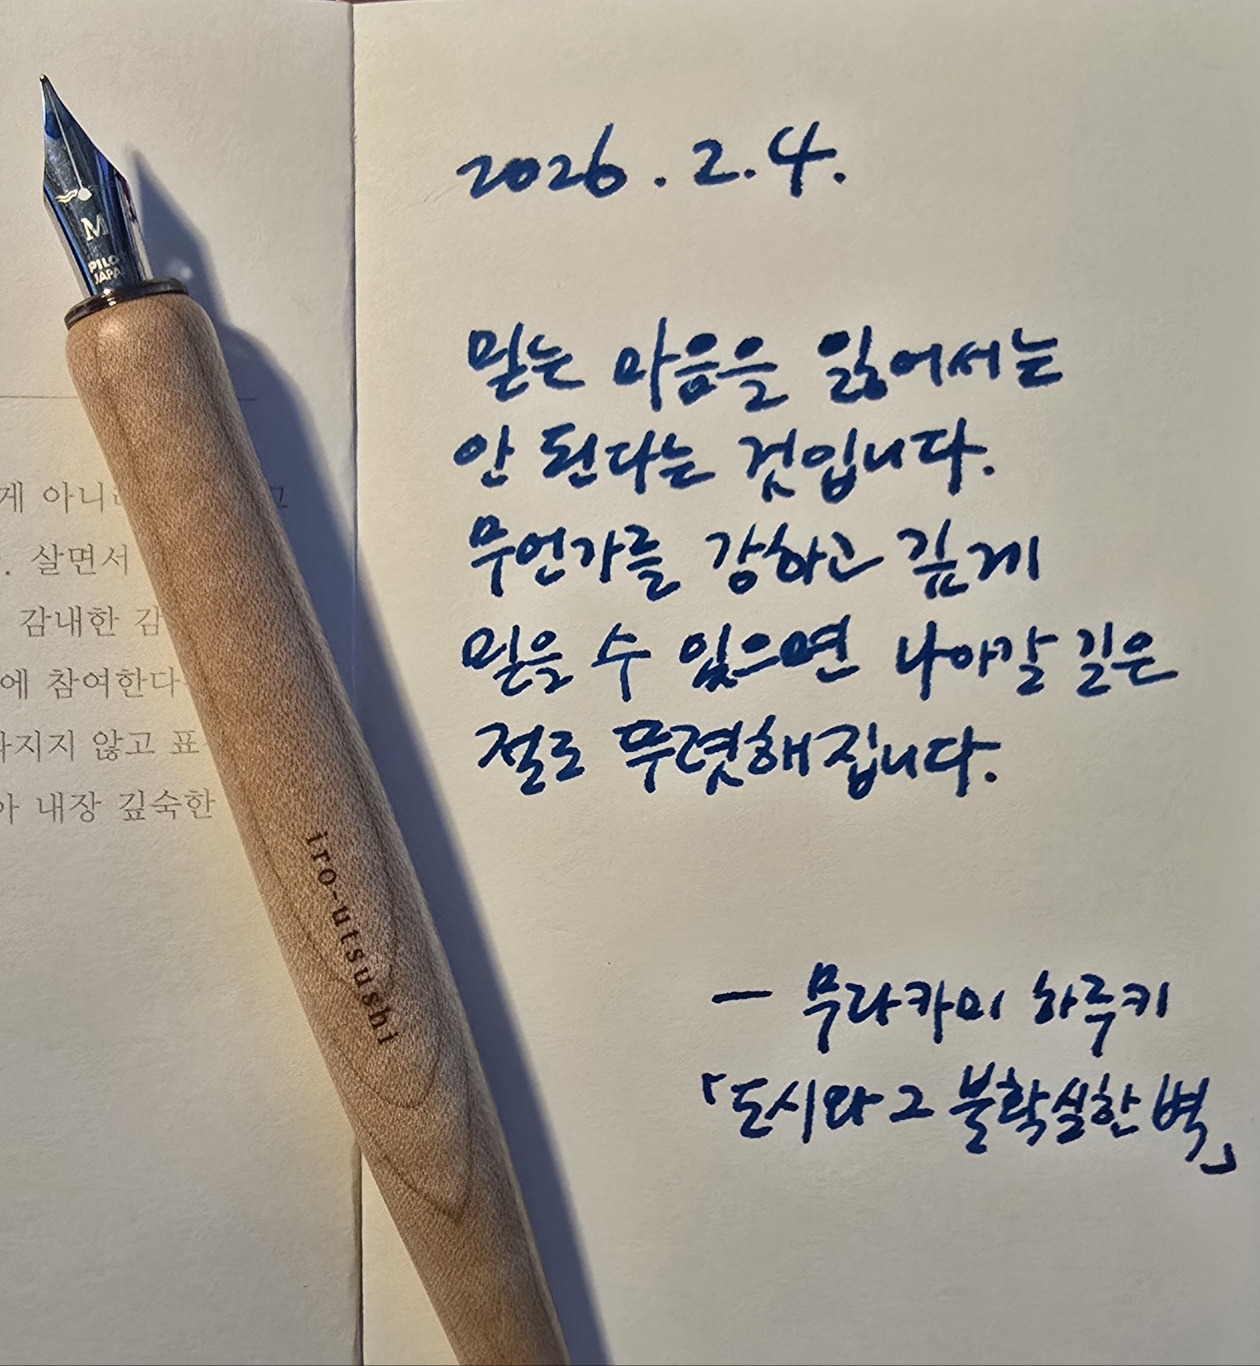 2026. 2. 4.
믿는 마음을 잃어서는
안 된다는 것입니다.
무언가를 강하고 깊게
믿을 수 있으면 나아갈 길은
절로 뚜렷해집니다.
— 무라카미 하루키
「도시와 그 불확실한 벽」
M
PILOT
JAPAN
iro-utsushi
게 아니
. 살면서
감내한 감
에 참여한다
지지 않고 표
아 내장 깊숙한